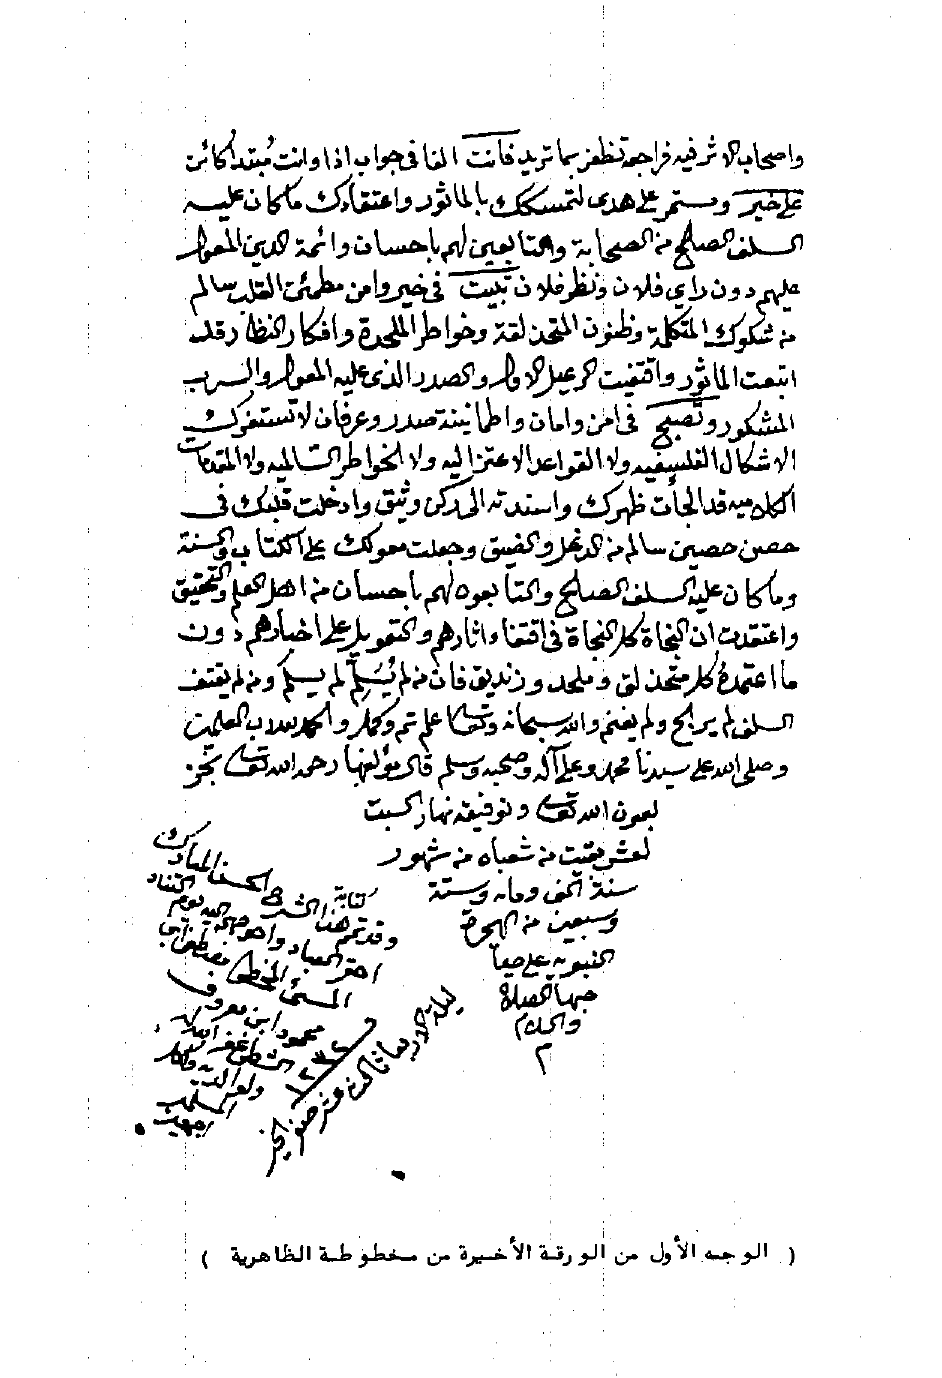 واصحاب الاثر فيه فراجعه تظفر بما تريد فانت الفا في جواب اذا وانت مبتدا كائن
على خير ومستمر على هدى لتمسكك بالماثور واعتقادك ما كان عليه
السلف الصالح من الصحابة والتابعين لهم باحسان وائمة الدين المعول
عليهم دون راي فلان ونظر فلان تبيت في خير وامن مطمئن القلب سالم
من شكوك المتكلمة وظنون المتحذلقة وخواطر الملحدة وافكار النظار قد
اتبعت الماثور واقتفيت الرعيل الاول والصدر الذي عليه المعول والسرب
المشكور وتصبح في امن وامان واطمانينة صدر وعرفان لا تستفزك
الاشكال الفلسفيه ولا القواعد الاعتزاليه ولا الخواطر السالميه ولا المقدمات
الكلاميه قد الجأت ظهرك واسندته الى ركن وثيق وادخلت قلبك في
حصن حصين سالم من الدغل والضيق وجعلت معولك على الكتاب والسنة
وما كان عليه السلف الصالح والتابعون لهم باحسان من اهل العلم والتحقيق
واعتقدت ان النجاة كل النجاة في اقتفاء اثارهم والتعويل على اخبارهم دون
ما اعتمده كل متحذلق وملحد وزنديق فان من لم يُسَلِّم لم يسلم ومن لم يقتف
السلف لم يربح ولم يغنم والله سبحانه وتعالى اعلم تم وكمل والحمد لله رب العلمين
وصلى الله على سيدنا محمد وعلى آله وصحبه وسلم قال مؤلفها رحمه الله تعالى نجز
بعون الله تعالى وتوفيقه نهار السبت
لعشر بقيت من شعبان من شهور
سنة الف ومائة وستة
وسبعين من الهجرة
النبويه على صاحبها الصلاة
والسلام
م
وقد تم كتابة هذا الشرح المبارك
احقر العباد واحوجهم اليه يوم التناد
المسيء المخطي مصطفى ابن
محمود ابن معروف
الشطي غفر الله له
ولوالديه ولكل
المسلمين
اجمعين
ليلة الاربعاء ثالث عشر صفر الخير
١٢٣٢
( الوجه الأول من الورقة الأخيرة من مخطوطة الظاهرية )